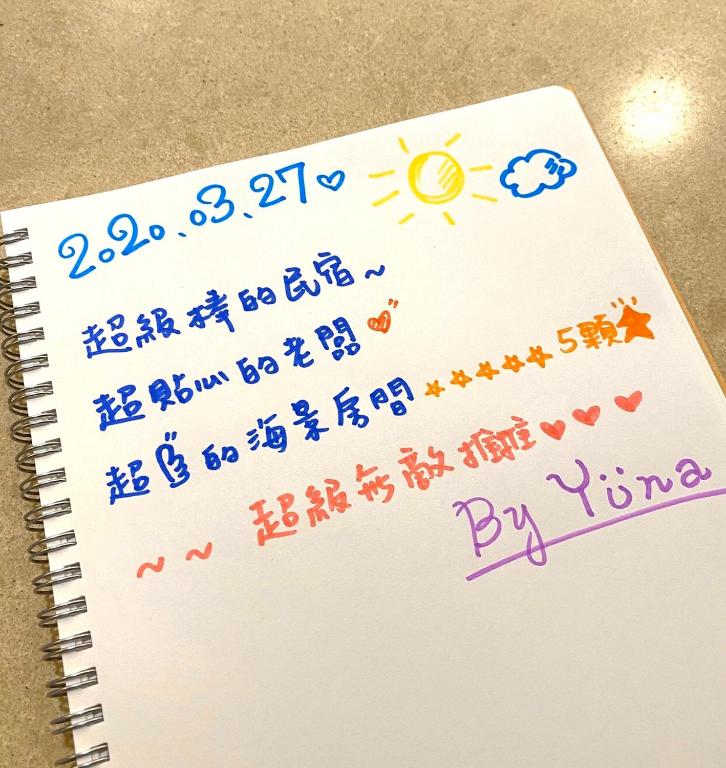 2020.03.27♡
超級棒的民宿~
超貼心的老闆♡
超的海景房間☆☆☆☆☆5顆★
~~超級無敵推推♡♡♡
By Yuna